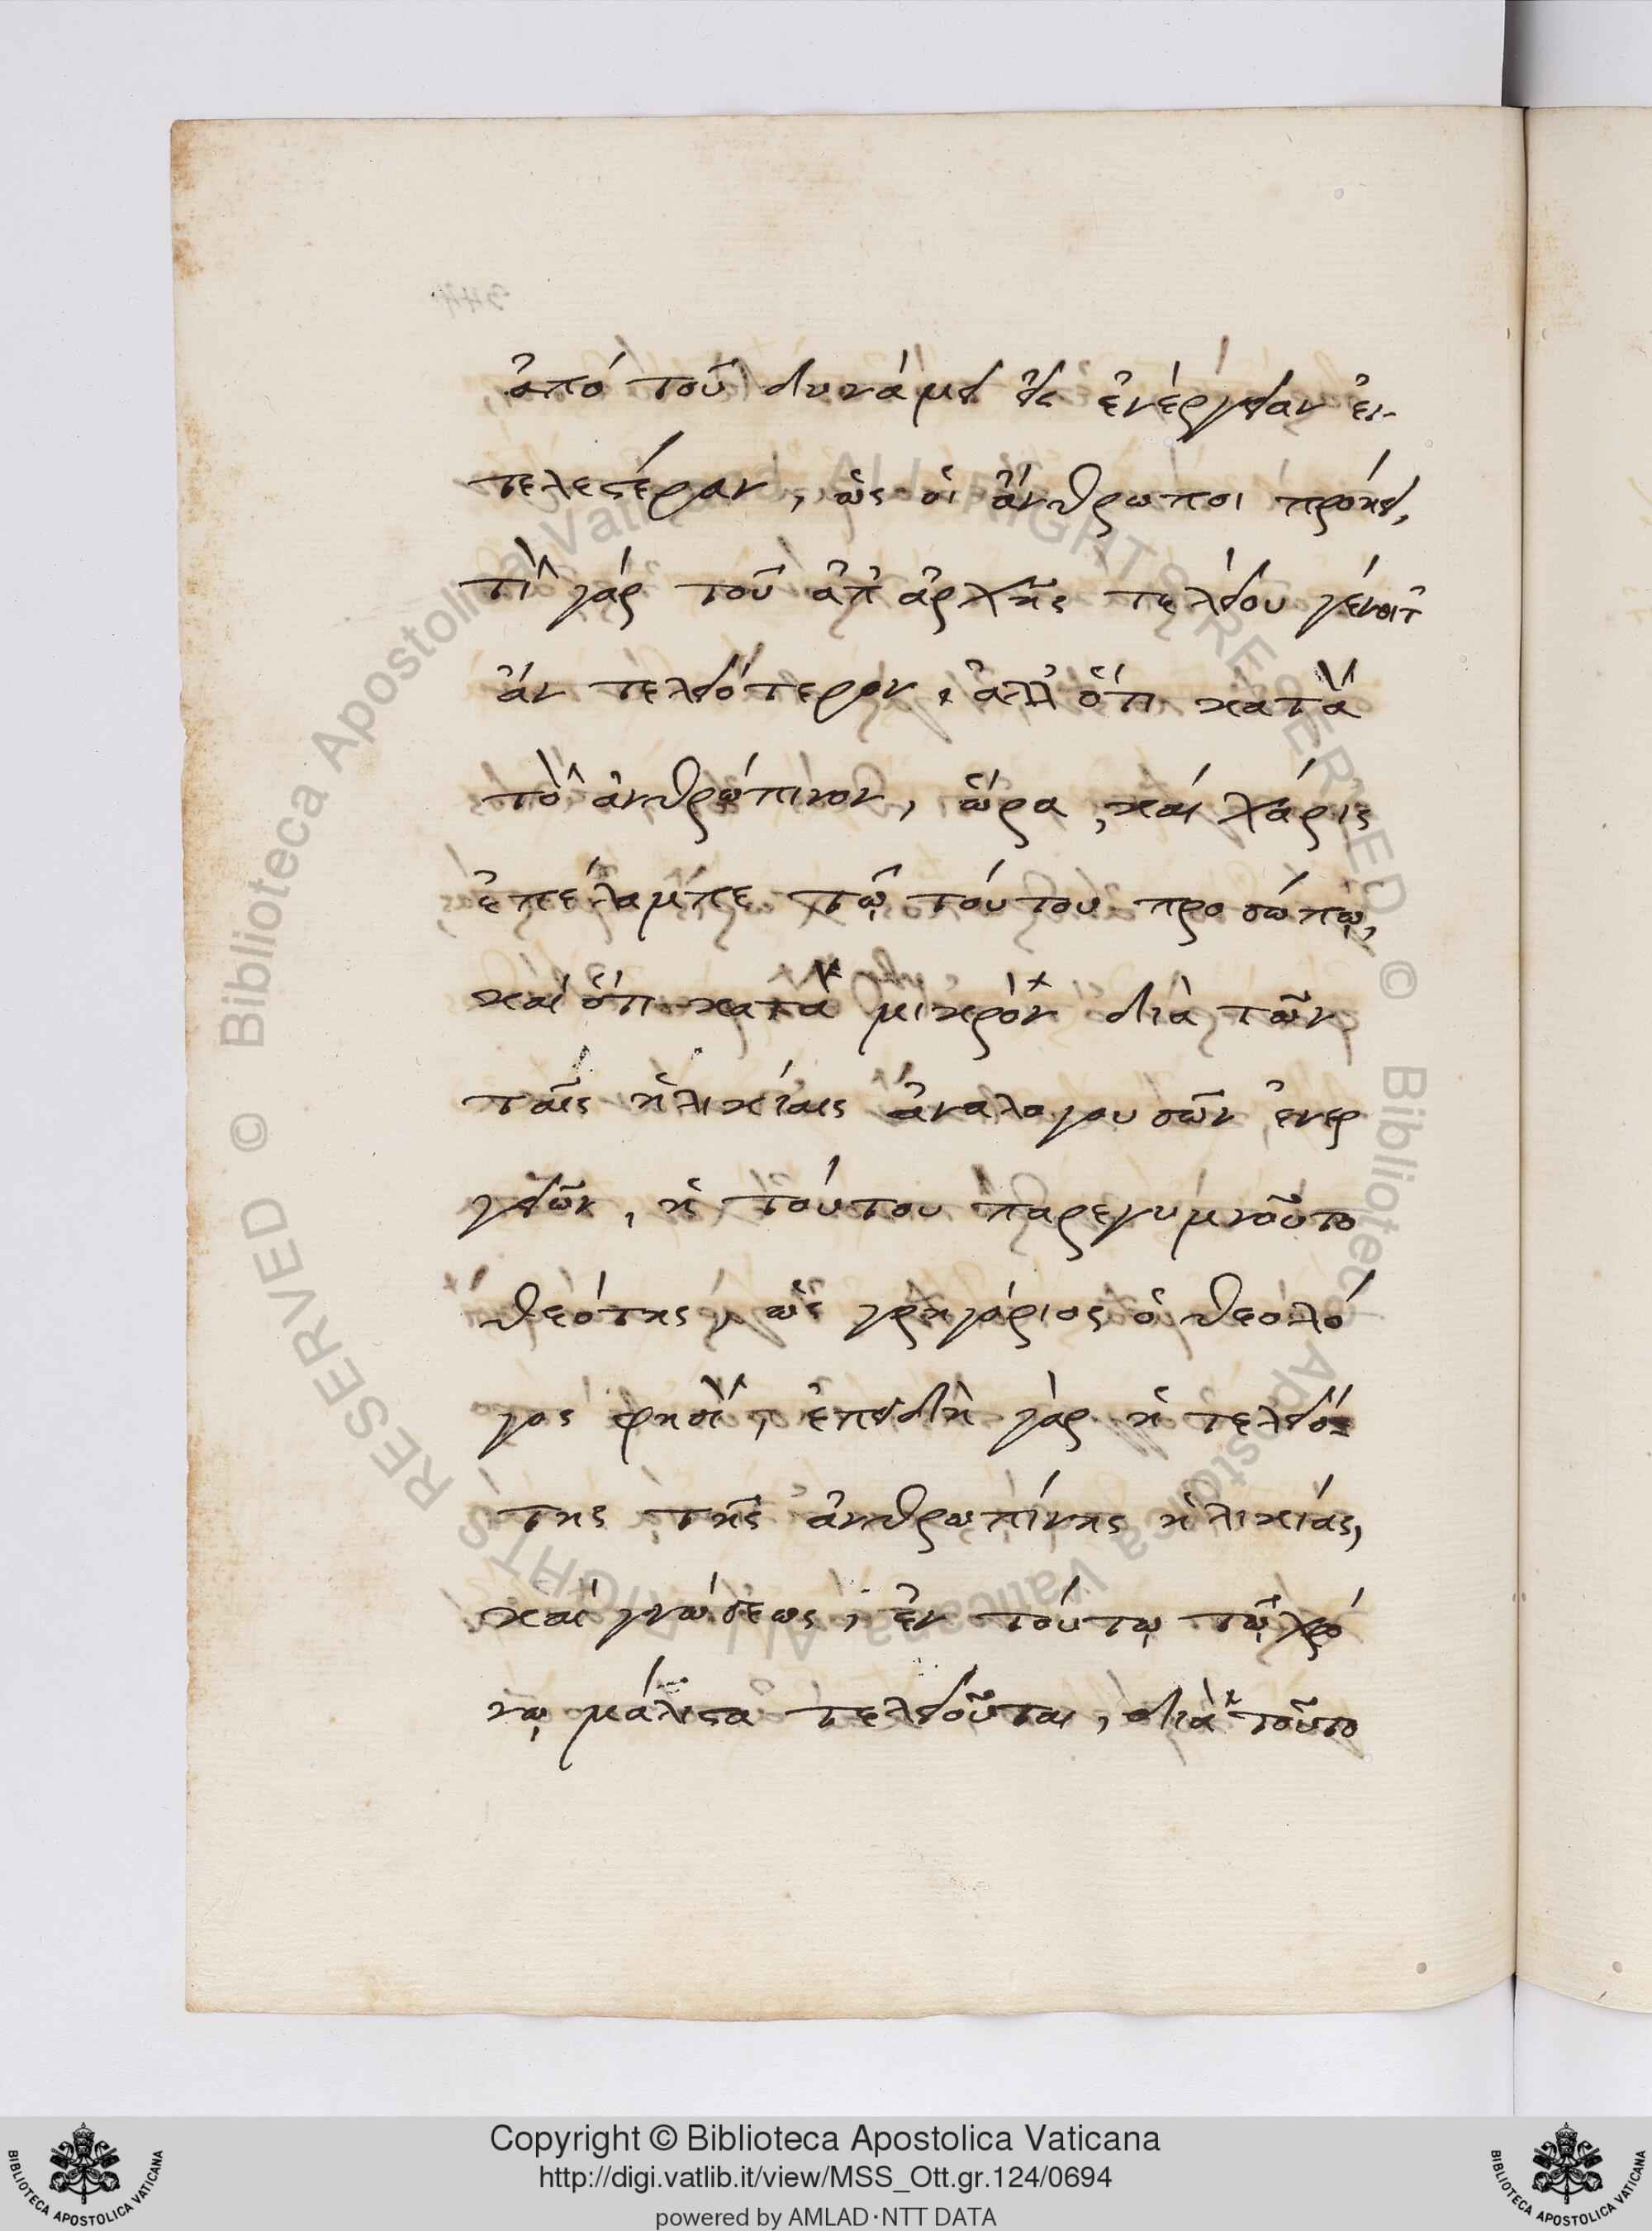 ἀπό τοῦ δυνάμει εἰς ἐνέργειαν ἐν-
τελεστέραν, ὡς οἱ ἄνθρωποι πρόηει,
τί γάρ τοῦ ἀπ' ἀρχῆς τελείου γένοιτ'
ἄν τελειότερον, ἀλλ' ὅτι κατὰ
τὸ ἀνθρώπινον, ὥρα, καί χάρις
ἐπέλαμπε τῷ τούτου προσώπῳ,
καί ὅτι κατὰ μικρὸν διὰ τῶν
ταῖς ἡλικίαις ἀναλογουσῶν ἐνερ
γειῶν, ἡ τούτου παρεγυμνοῦτο
θεότης, ὡς γρηγόριος ὁ θεολό
γος φησὶ, ἐπειδὴ γὰρ ἡ τελειό-
της τῆς ἀνθρωπίνης ἡλικίάς,
καί γνώσεως, ἐν τούτῳ τῷ χρό
νῳ μάλιστα τελειοῦται, διὰ τοῦτο
Copyright © Biblioteca Apostolica Vaticana
http://digi.vatlib.it/view/MSS_Ott.gr.124/0694
powered by AMLAD·NTT DATA
© Biblioteca Apostolica Vaticana ALL RIGHTS RESERVED
© Biblioteca Apostolica Vaticana ALL RIGHTS RESERVED
BIBLIOTECA APOSTOLICA VATICANA
BIBLIOTECA APOSTOLICA VATICANA